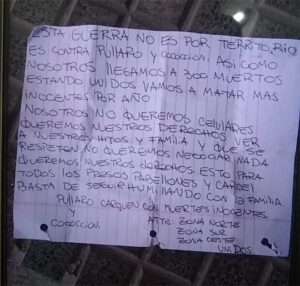 ESTA GUERRA NO ES POR TERRITORIO
ES CONTRA PULLARO Y COCOCCIONI ASI COMO
NOSOTROS LLEGAMOS A 300 MUERTOS
ESTANDO UNIDOS VAMOS A MATAR MAS
INOCENTES POR AÑO
NOSOTROS NO QUEREMOS CELULARES
QUEREMOS NUESTROS DERECHOS VER
A NUESTROS HIJOS Y FAMILIA Y QUE SE
RESPETEN NO QUEREMOS NEGOCIAR NADA
QUEREMOS NUESTROS DERECHOS ESTO PARA
TODOS LOS PRESOS PABELLONES Y CARCEL
BASTA DE SEGUIR HUMILLANDO CON LA FAMILIA.
PULLARO CARGUEN CON MUERTES INOCENTES
Y
COCOCCIONI
ATTE: ZONA NORTE
ZONA SUR
ZONA OESTE
UNIDOS